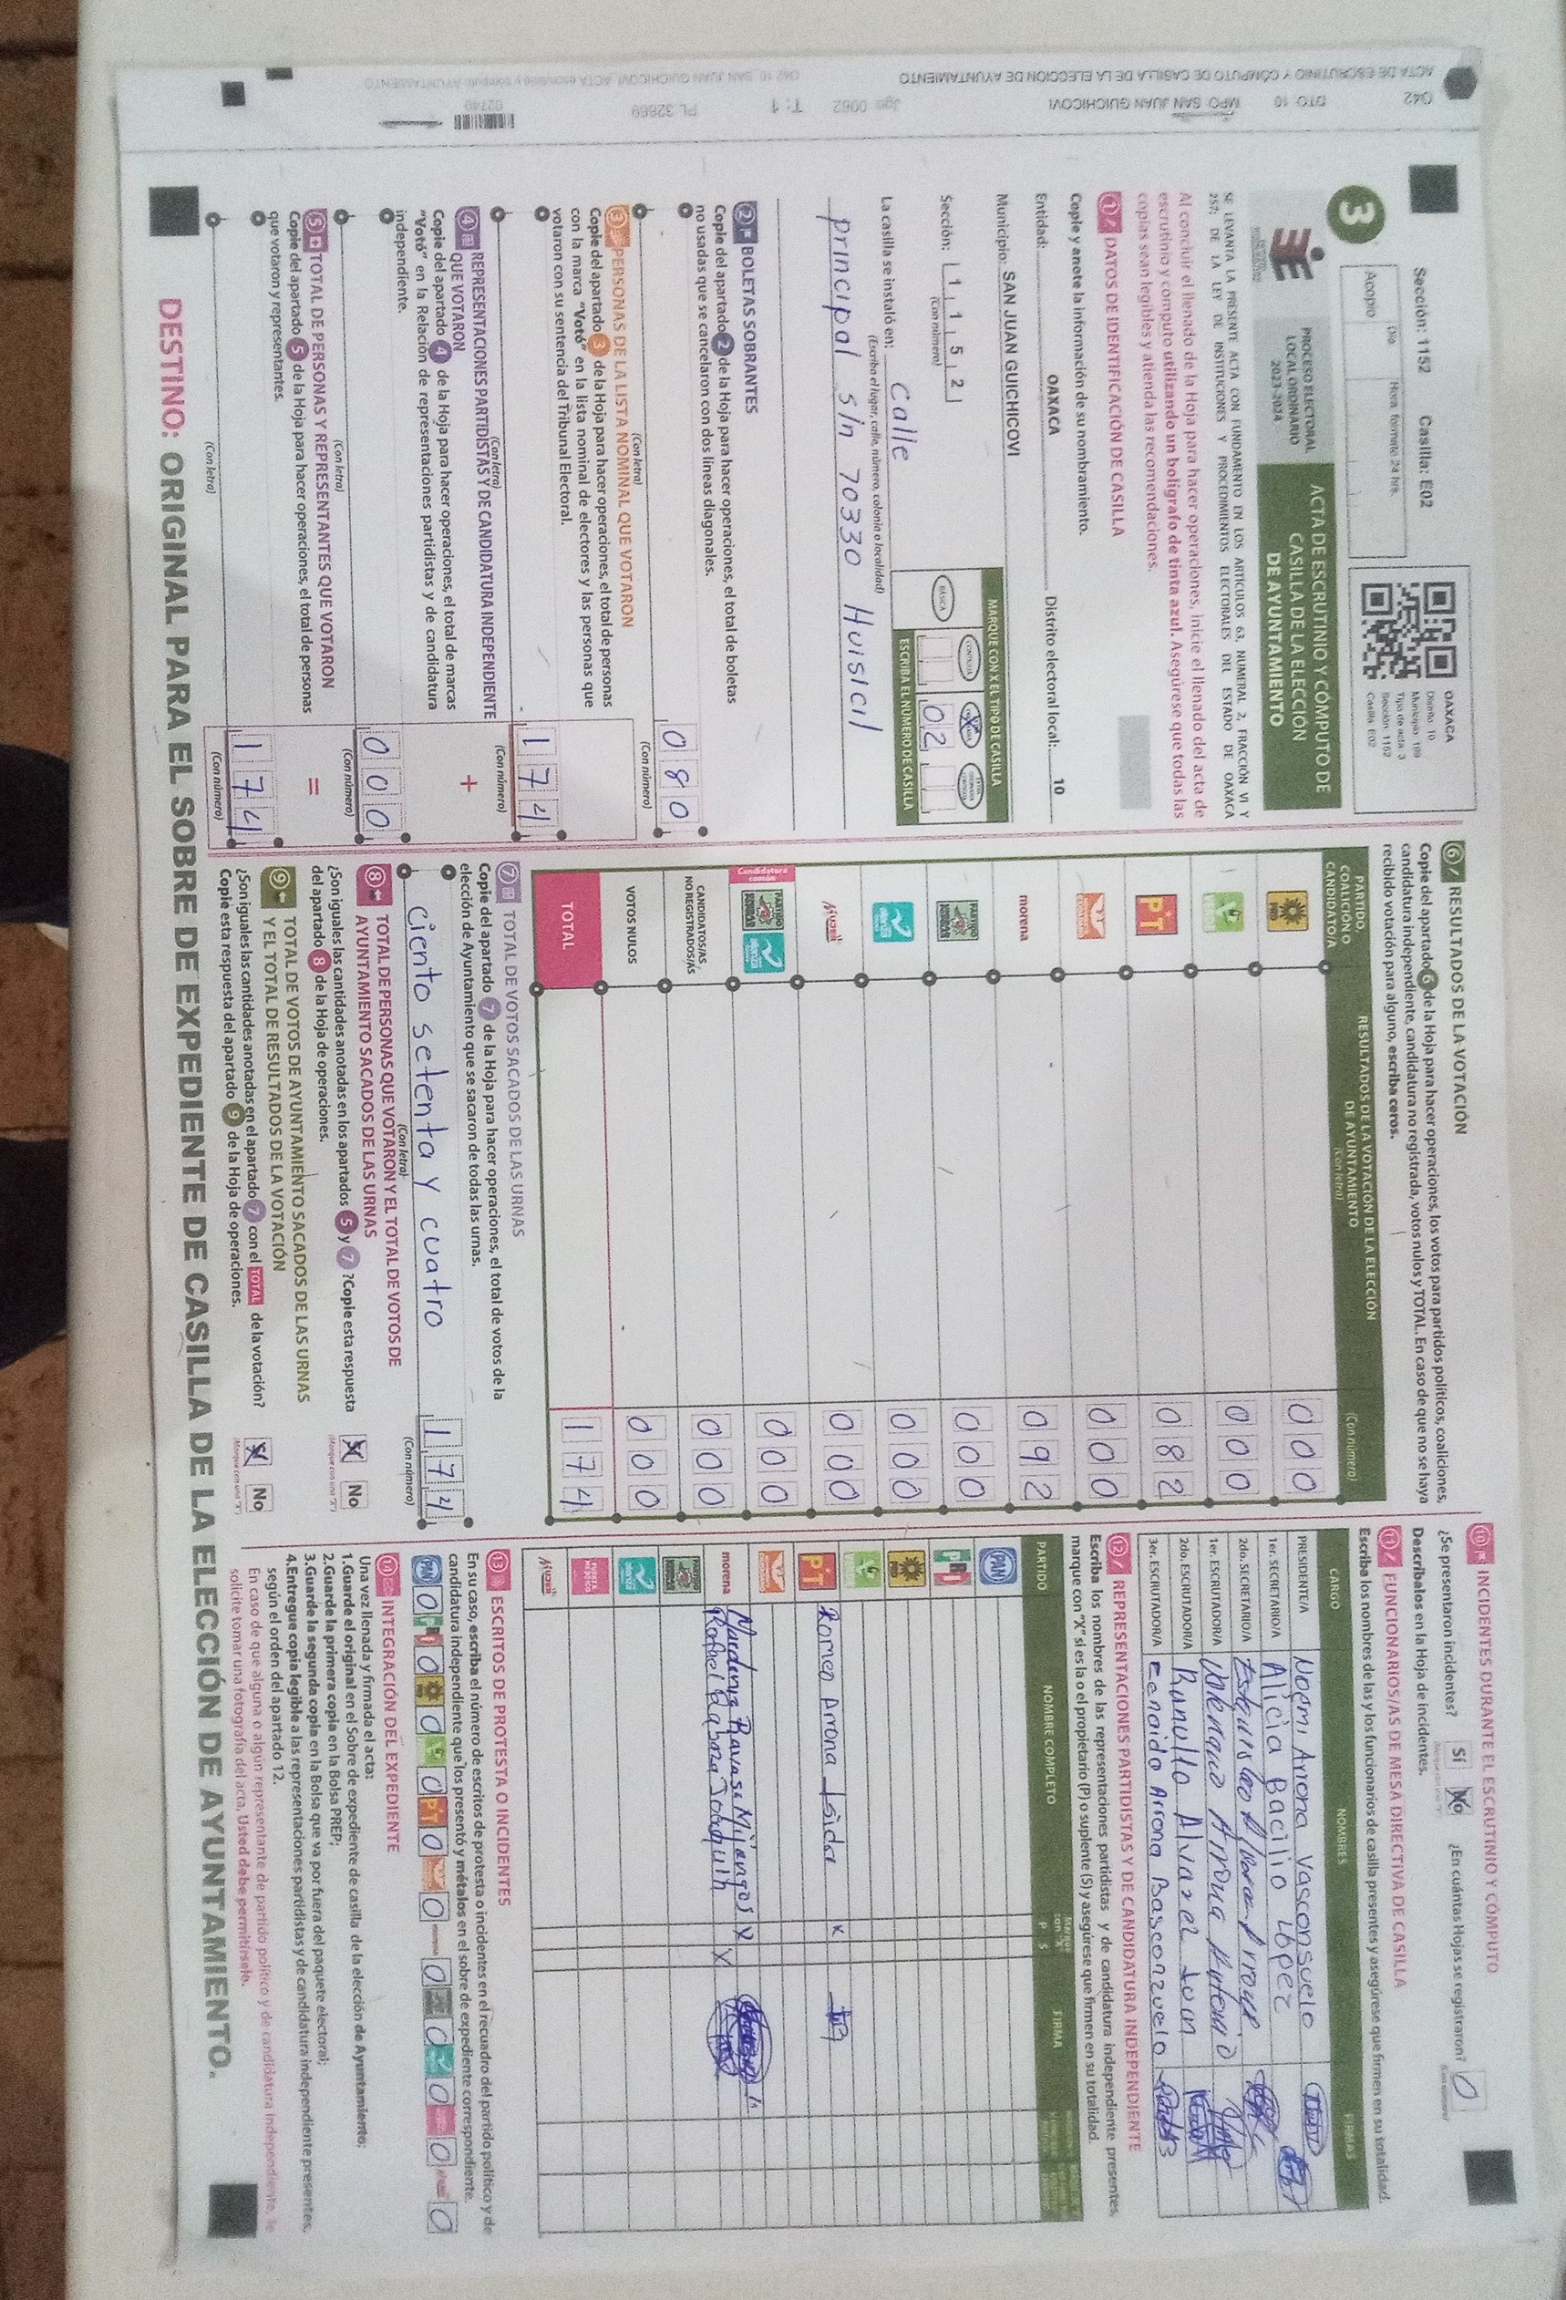 Sección: 1152 Casilla: E02
Día Hora, formato 24 hrs.
Acopio
3
OAXACA
Distrito: 10
Tipo de acta: 3
Sección: 1152
Casilla: E02
PROCESO ELECTORAL
LOCAL ORDINARIO
2023-2024
ACTA DE ESCRUTINIO Y CÓMPUTO DE
CASILLA DE LA ELECCIÓN
DE AYUNTAMIENTO
SE LEVANTA LA PRESENTE ACTA CON FUNDAMENTO EN LOS ARTÍCULOS 63, NUMERAL 2, FRACCIÓN VI Y
257; DE LA LEY DE INSTITUCIONES Y PROCEDIMIENTOS ELECTORALES DEL ESTADO DE OAXACA
Al concluir el llenado de la Hoja para hacer operaciones, inicie el llenado del acta de
escrutinio y cómputo utilizando un bolígrafo de tinta azul. Asegúrese que todas las
copias sean legibles y atienda las recomendaciones.
1 DATOS DE IDENTIFICACIÓN DE CASILLA
Copie y anote la información de su nombramiento.
Entidad: OAXACA Distrito electoral local: 10
Municipio: SAN JUAN GUICHICOVI
Sección: 1 1 5 2
(Con número)
MARQUE CON X EL TIPO DE CASILLA
BÁSICA
02
ESCRIBA EL NÚMERO DE CASILLA
La casilla se instaló en: Calle
(Escriba el lugar, calle, número, colonia o localidad)
principal s/n 70330 Huisicil
2 BOLETAS SOBRANTES
Copie del apartado 2 de la Hoja para hacer operaciones, el total de boletas
no usadas que se cancelaron con dos líneas diagonales.
0 8 0
(Con letra) (Con número)
3 PERSONAS DE LA LISTA NOMINAL QUE VOTARON
Copie del apartado 3 de la Hoja para hacer operaciones, el total de personas
con la marca "Votó" en la lista nominal de electores y las personas que
votaron con su sentencia del Tribunal Electoral.
1 7 4
(Con letra) (Con número)
4 REPRESENTACIONES PARTIDISTAS Y DE CANDIDATURA INDEPENDIENTE
QUE VOTARON +
Copie del apartado 4 de la Hoja para hacer operaciones, el total de marcas
"Votó" en la Relación de representaciones partidistas y de candidatura
independiente.
0 0 0
(Con letra) (Con número)
5 TOTAL DE PERSONAS Y REPRESENTANTES QUE VOTARON =
Copie del apartado 5 de la Hoja para hacer operaciones, el total de personas
que votaron y representantes.
1 7 4
(Con letra) (Con número)
6 RESULTADOS DE LA VOTACIÓN
Copie del apartado 6 de la Hoja para hacer operaciones, los votos para partidos políticos, coaliciones,
candidatura independiente, candidatura no registrada, votos nulos y TOTAL. En caso de que no se haya
recibido votación para alguno, escriba ceros.
PARTIDO,
COALICIÓN O
CANDIDATO/A
RESULTADOS DE LA VOTACIÓN DE LA ELECCIÓN
DE AYUNTAMIENTO
(Con letra) (Con número)
PRD 0 0 0
0 0 0
PT 0 8 2
0 0 0
morena 0 9 2
0 0 0
0 0 0
Mujer 0 0 0
Candidatura común 0 0 0
CANDIDATOS/AS
NO REGISTRADOS/AS 0 0 0
VOTOS NULOS 0 0 0
TOTAL 1 7 4
7 TOTAL DE VOTOS SACADOS DE LAS URNAS
Copie del apartado 7 de la Hoja para hacer operaciones, el total de votos de la
elección de Ayuntamiento que se sacaron de todas las urnas.
Ciento setenta y cuatro 1 7 4
(Con letra) (Con número)
8 TOTAL DE PERSONAS QUE VOTARON Y EL TOTAL DE VOTOS DE
AYUNTAMIENTO SACADOS DE LAS URNAS
¿Son iguales las cantidades anotadas en los apartados 5 y 7 ?Copie esta respuesta
del apartado 8 de la Hoja de operaciones. X No
9 TOTAL DE VOTOS DE AYUNTAMIENTO SACADOS DE LAS URNAS
Y EL TOTAL DE RESULTADOS DE LA VOTACIÓN
¿Son iguales las cantidades anotadas en el apartado 7 con el TOTAL de la votación?
Copie esta respuesta del apartado 9 de la Hoja de operaciones. X No
10 INCIDENTES DURANTE EL ESCRUTINIO Y CÓMPUTO
¿Se presentaron incidentes? Sí No ¿En cuántas Hojas se registraron? 0
Descríbalos en la Hoja de incidentes.
11 FUNCIONARIOS/AS DE MESA DIRECTIVA DE CASILLA
Escriba los nombres de las y los funcionarios de casilla presentes y asegúrese que firmen en su totalidad.
CARGO NOMBRES FIRMAS
PRESIDENTE/A Noemi Arrona Vasconsuelo
1er. SECRETARIO/A Alicia Bacilio López
2do. SECRETARIO/A
1er. ESCRUTADOR/A Arrona Antonio
2do. ESCRUTADOR/A
3er. ESCRUTADOR/A Arrona Basconzuelo
12 REPRESENTACIONES PARTIDISTAS Y DE CANDIDATURA INDEPENDIENTE
Escriba los nombres de las representaciones partidistas y de candidatura independiente presentes,
marque con "X" si es la o el propietario (P) o suplente (S) y asegúrese que firmen en su totalidad.
PARTIDO NOMBRE COMPLETO P S FIRMA
PAN
PRI
PRD
PT Romeo Arrona Isidor X
morena
X
Mujer
13 ESCRITOS DE PROTESTA O INCIDENTES
En su caso, escriba el número de escritos de protesta o incidentes en el recuadro del partido político y de
candidatura independiente que los presentó y métalos en el sobre de expediente correspondiente.
PAN 0 0 0 0 PT 0 0 0 0 0 0 0
14 INTEGRACIÓN DEL EXPEDIENTE
Una vez llenada y firmada el acta:
1.Guarde el original en el Sobre de expediente de casilla de la elección de Ayuntamiento;
2.Guarde la primera copia en la Bolsa PREP;
3.Guarde la segunda copia en la Bolsa que va por fuera del paquete electoral;
4.Entregue copia legible a las representaciones partidistas y de candidatura independiente presentes,
según el orden del apartado 12.
En caso de que alguna o algún representante de partido político y de candidatura independiente, le
solicite tomar una fotografía del acta, Usted debe permitírselo.
DESTINO: ORIGINAL PARA EL SOBRE DE EXPEDIENTE DE CASILLA DE LA ELECCIÓN DE AYUNTAMIENTO.
ACTA DE ESCRUTINIO Y CÓMPUTO DE CASILLA DE LA ELECCIÓN DE AYUNTAMIENTO
042 DTO. 10 MPO. SAN JUAN GUICHICOVI
T: 1 PL. 32669
02749